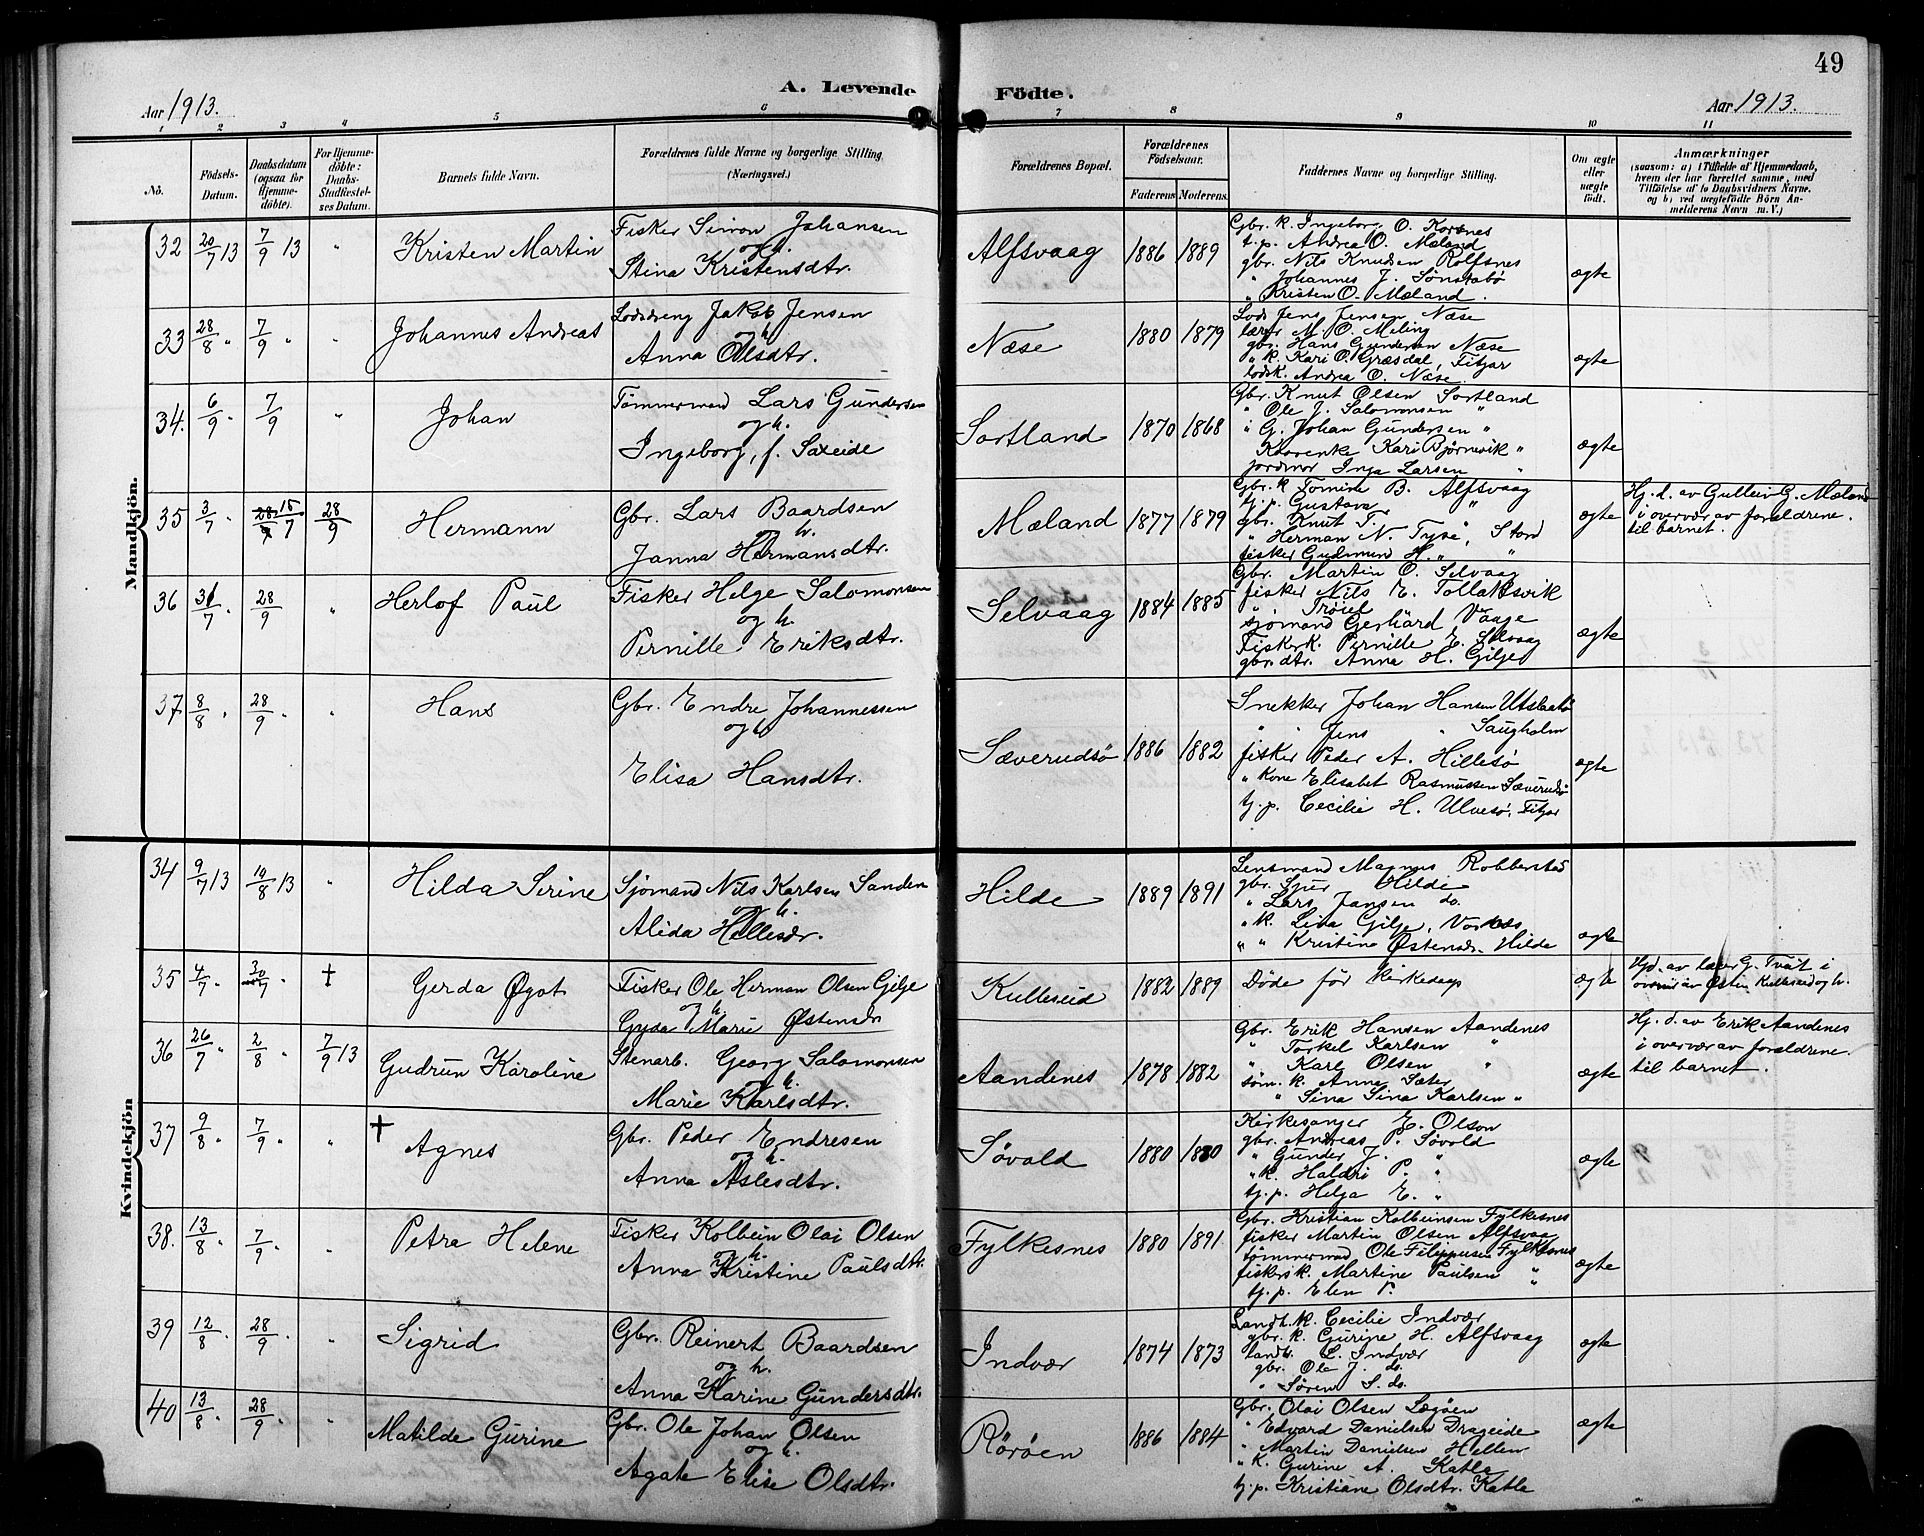 49
A. Levende Födte.
Aar 1913.
Aar 1913.
1 2 3 4 5 6 7 8 9 10 11
No.
Födsels-Datum.
Daabsdatum (ogsaa for Hjemme-döbte).
For Hjemme-döbte: Daabs-Stadfæstel-ses Datum.
Barnets fulde Navn.
Forældrenes fulde Navne og borgerlige Stilling (Næringsvei.)
Forældrenes Bopæl.
Forældrenes Födselsaar.
Faderens
Moderens
Faddernes Navne og borgerlige Stilling.
Om ægte eller uægte födt.
Anmærkninger
(saasom: a) i Tilfælde af Hjemmedaab, hvem der har forrettet samme, med Tilföielse af to Daabsvidners Navne, og b) ved uægtefödte Börn An-melderens Navn m. V.)
Mandkjön.
32 20/7 13 7/9 13 " Kristen Martin
Fisker Simon Johansen
og h.
Stina Kristensdtr.
Alfsvaag 1886 1889
Gbr. k. Ingeborg O. Korsnes
t.p. Andrea O. Mæland
gbr. Nils Knudsen Rolfsnes
" Johannes J. Sønstabø
" Kristen O. Mæland.
ægte
33 28/8 " 7/9 " " Johannes Andreas
Lodsdreng Jakob Jensen
og h.
Anna Olsdtr.
Næse 1880 1879
Lods Jens Jensen Næse
lærer M. O. Meling
gbr. Hans Gundersen Næse
" k. Kari O. Græsdal, Fitjar
lodsk. Andrea O. Næse.
ægte
34. 6/9 " 7/9 " Johan
Tømmermand Lars Gundersen
og h.
Ingeborg, f. Saxeide
Sortland 1870 1868
Gbr. Knut Olsen Sortland
" Ole J. Salomonsen "
" G. Johan Gundersen "
Kaarenke Kari Bjørnevik "
jordmor Inga Larsen "
ægte
35 3/7 " 15/7 28/9 Hermann
Gbr. Lars Baardsen
og h.
Janna Hermansdtr.
Mæland 1877 1879
Gbr. k Tomine B. Alfsvaag
t.p. Gustava "
gbr. Knut T. "
" Herman N. Tyse, Stord
fisker Gudmund H. " "
ægte
Hj. d. av Gullein G. Mæland
i overvær av forældrene
til barnet.
36 31/7 " 28/9 " Herlof Paul
Fisker Helge Salomonsen
og h.
Pernille Eriksdtr.
Selvaag 1884 1885
Gbr. Martin O. Selvaag
fisker Nils E. Tollaksvik
" Trøiel "
sjømand Gerhard Vaage
Fiskerk. Pernille E. Selvaag
gbr.dtr. Anna H. Gilje
ægte
37 8/8 " 28/9 " " Hans
Gbr. Endre Johannessen
og h
Elisa Hansdtr.
Sæverudsø 1886 1882
Snekker Johan Hansen Utslaatø
" Jens " Saugholm
fisker Peder A. Hillesø
" Kone Elisabet Rasmussen Sæverudsø
tj.p. Cecilie H. Ulvesø, Fitjar
ægte
Kvindekjön
34 9/7 13 10/8 13 " Hilda Serine
Sjømand Nils Karlsen Sanden
og h.
Alida Hellesdr.
Hilde 1889 1891
Lensmand Magnus Robberstad
gbr. Sjur Hilde
" Lars Jansen do.
" k. Lina Gilje, Vornes
" " Kristine Østensdr. Hilde
ægte
35 4/7 " 30/7 " † Gerda Øgot
Fisker Ole Herman Olsen Gilje
og h.
Gyda Marie Østensdr
Kulleseid 1882 1889
Døde før kirkedaap
ægte
Hjd. av lærer G. Tvait i
overvær av Østen Kulleseid og h.
36 26/7 " 2/8 " 7/9 13 Gudrun Karoline
Stenarb. Georg Salomonsen
og h.
Marie Karlsdtr.
Aandenes 1878 1882
Gbr. Erik Hansen Aandenes
" Torkel Karlsen "
" Karl Olsen "
søm. k. Anna Sæter
" Sina Sina Karlsen "
ægte
Hj. d. av Erik Aandenes
i overvær av forældrene
til barnet.
37 9/8 " 7/9 " " † Agnes
Gbr. Peder Endresen
og h.
Anna Aslesdtr.
Søvold 1880 1880
Kirkesanger E. Olson
gbr. Andreas P. Søvold
" Gunder J. "
" k. Haldri P. "
tj.p. Helga E. "
ægte
38. 13/8 " 7/9 " " Petra Helene
Fisker Kolbein Olai Olsen
og h.
Anna Kristine Paulsdtr.
Fylkesnes 1880 1891
Gbr. Kristian Kolbeinsen Fylkesnes
fisker Martin Olsen Alfsvaag
tømmermand Ole Filippusen Fylkesnes
fiskersk. Martine Paulsen "
tj.p. Elen P. "
ægte
39 12/8 " 28/9 " " Sigrid
Gbr. Reinert Baardsen
og h.
Anna Karine Gundersdtr.
Indvær 1874 1873
Landh. k. Cecilie Indvær
gbr. k. Gurine H. Alfsvaag
landh. L. Indvær
gbr. Ole J. do.
" Søren S. do.
ægte
40 13/8 " 28/9 " " Matilde Gurine
Gbr. Ole Johan Olsen
og h.
Agate Elise Olsdtr.
Rørøen 1886 1884
Gbr. Olai Olsen Lægøen
" Edvard Danielsen Drageide
" Martin Danielsen Hellen
" k. Gurine A. Katla
tj.p. Kristiane Olsdtr. Katla
ægte